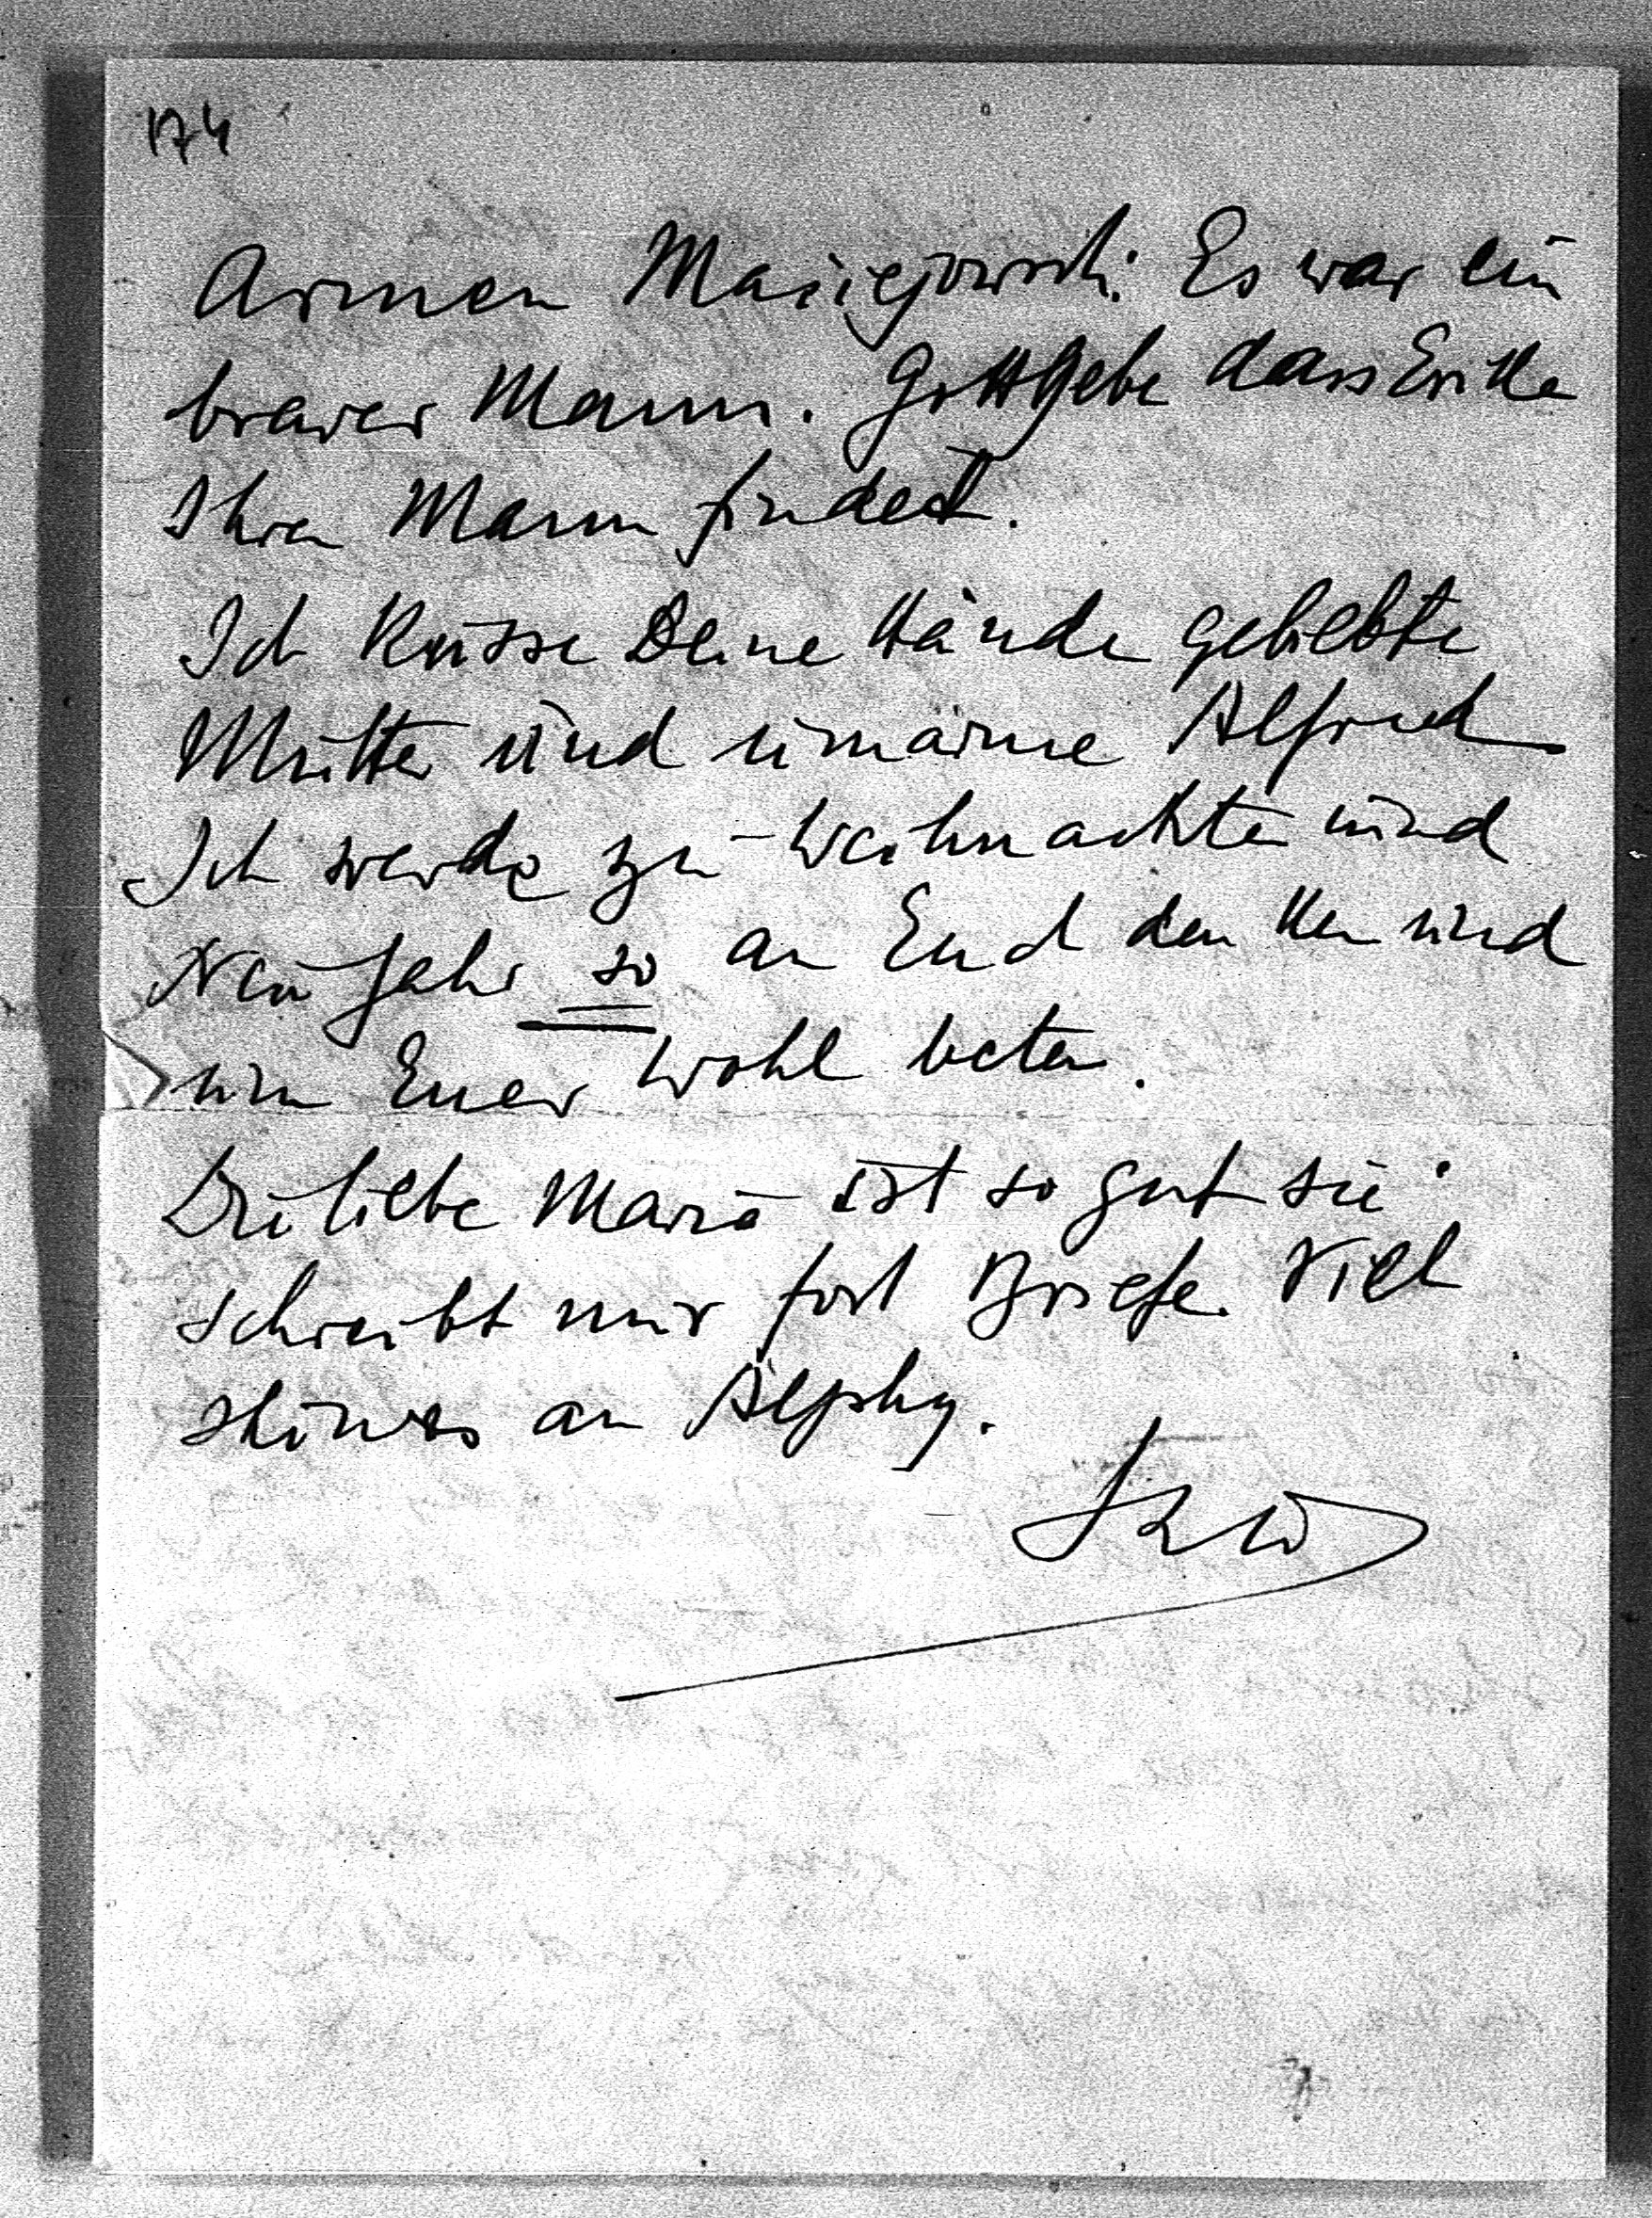 174
Armen Maciejowski. Es war ein
braver Mann. Gott gebe dass Erika
Ihren Mann findet.
Ich küsse Deine Hände geliebte
Mutter und umarme Alfred
Ich werde zu Weihnachten und
Neu Jahr so an Euch denken und
um Euer Wohl beten.
Die liebe Maria ist so gut sie
schreibt mir fort Briefe. Viel
schönes an